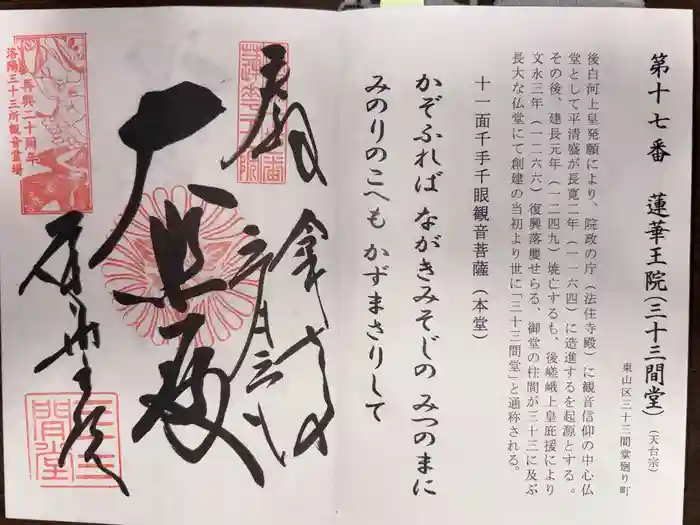 第十七番 蓮華王院(三十三間堂)(天台宗)
東山区三十三間堂廻り町
後白河上皇発願により、院政の庁(法住寺殿)に観音信仰の中心仏
堂として平清盛が長寛二年(一一六四)に造進するを起源とする。
その後、建長元年(一二四九)焼亡するも、後嵯峨上皇庇援により
文永三年(一二六六)復興落慶せらる、御堂の柱間が三十三に及ぶ
長大な仏堂にて創建の当初より世に「三十三間堂」と通称される。
十一面千手千眼観音菩薩(本堂)
かぞふれば ながきみそじの みつのまに
みのりのこへも かずまさりして
大悲殿
再興二十周年
洛陽三十三所観音霊場
三十三間堂